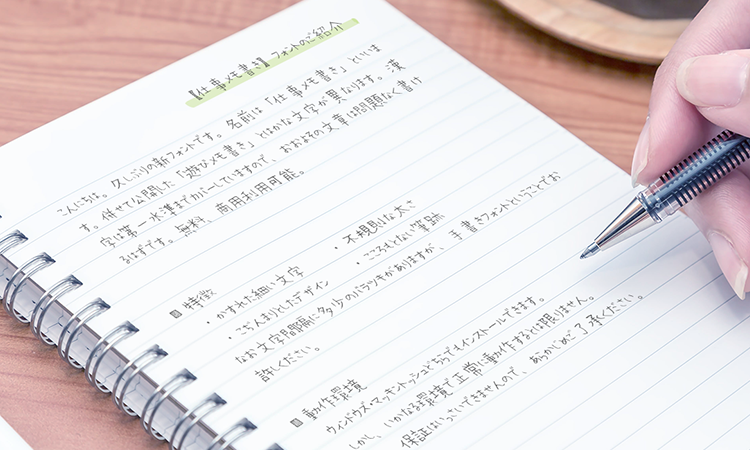 【仕事メモ書き】フォントのご紹介
こんにちは。久しぶりの新フォントです。名前は「仕事メモ書き」といいま
す。併せて公開した「遊びメモ書き」とはかな文字が異なります。漢
字は第一水準までカバーしていますので、おおよその文章は問題なく書け
るはずです。無料、商用利用可能。
■ 特徴
・かすれた細い文字 ・不規則な太さ
・こぢんまりとしたデザイン ・こころもとない筆跡
なお文字間隔に多少のバラツキがありますが、手書きフォントということでお
許しください。
■ 動作環境
ウィンドウズ・マッキントッシュどちらでもインストールできます。
しかし、いかなる環境で正常に動作するとは限りません。
保証はいっさいできませんので、あらかじめご了承ください。